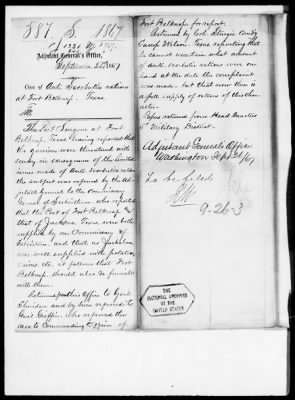 587. S. 1867
Adjutant General's Office,
September 26 1867
Case of Anti Scorbutic rations
at Fort Belknap, Texas
The Post Surgeon at Fort
Belknap, Texas having reported that
the garrison was threatened with
scurvy in consequence of the limited
issues of Anti Scorbutic rations
the subject was referred by the
General to the Commissary
General of Subsistence, who reported
that the Post of Fort Belknap and
that of Jacksboro, Texas were both
supplied by an Commissary of
Subsistence, and that as Jacksboro
was well supplied with potatoes,
onions etc. it follows that Fort
Belknap should also be furnished
with them.
Returned from this Office to Genl
Sheridan and by him referred to
Genl Griffin, who referred the
case to Commanding Officer of
Fort Belknap, for report.
Returned by Col. Sturgis Comdg
Camp Wilson, Texas reporting that
he cannot ascertain what amount
of anti scorbutic rations were on
hand at the date the complaint
was made but that now there is
a supply of rations of this char-
acter.
Papers returned from Head Quarters
5" Military District.
Adjutant General's Office
Washington Sept 26/67
9-26-3
THE
NATIONAL ARCHIVES
OF THE
UNITED STATES